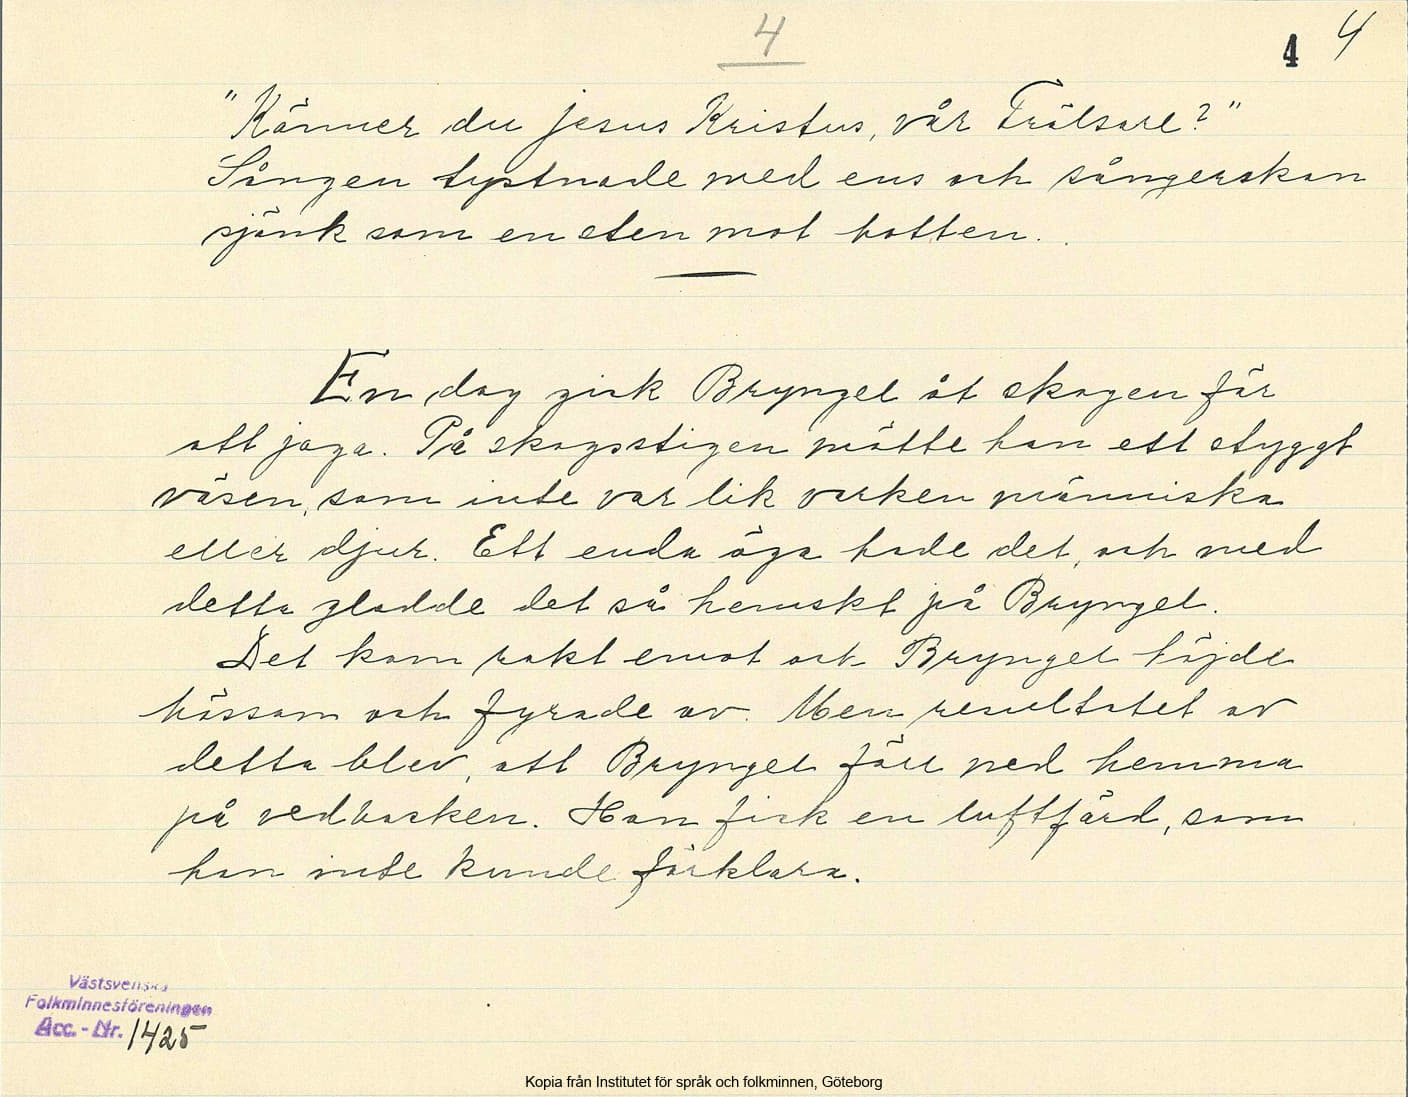 4
4 4
"Känner du Jesus Kristus, vår Frälsare?"
Sången tystnade med ens och sångerskan
sjönk som en sten mot botten.
En dag gick Bryngel åt skogen för
att jaga. På skogsstigen mötte han ett styggt
väsen, som inte var lik varken människa
eller djur. Ett enda öga hade det, och med
detta glodde det så hemskt på Bryngel.
Det kom rakt emot och Bryngel höjde
bössan och fyrade av. Men resultatet av
detta blev, att Bryngel föll ned hemma
på vedbacken. Han fick en luftfärd, som
han inte kunde förklara.
Västsvenska
Folkminnesföreningen
Acc.-Nr. 1425
Kopia från Institutet för språk och folkminnen, Göteborg